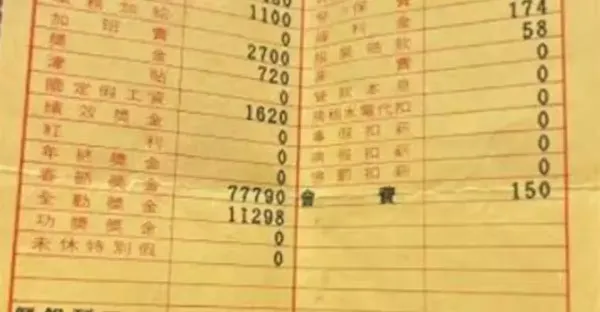 務加給 1100
加班費 0
獎金 2700
津貼 720
國定假工資 0
績效獎金 1620
紅利 0
年終獎金 0
春節獎金 0
全勤獎金 77790
功獎獎金 11298
未休特別假 0
0
保費 174
福利金 58
0
費 0
貸款本息 0
水電代扣 0
事假扣薪 0
病假扣薪 0
扣薪 0
會費 150